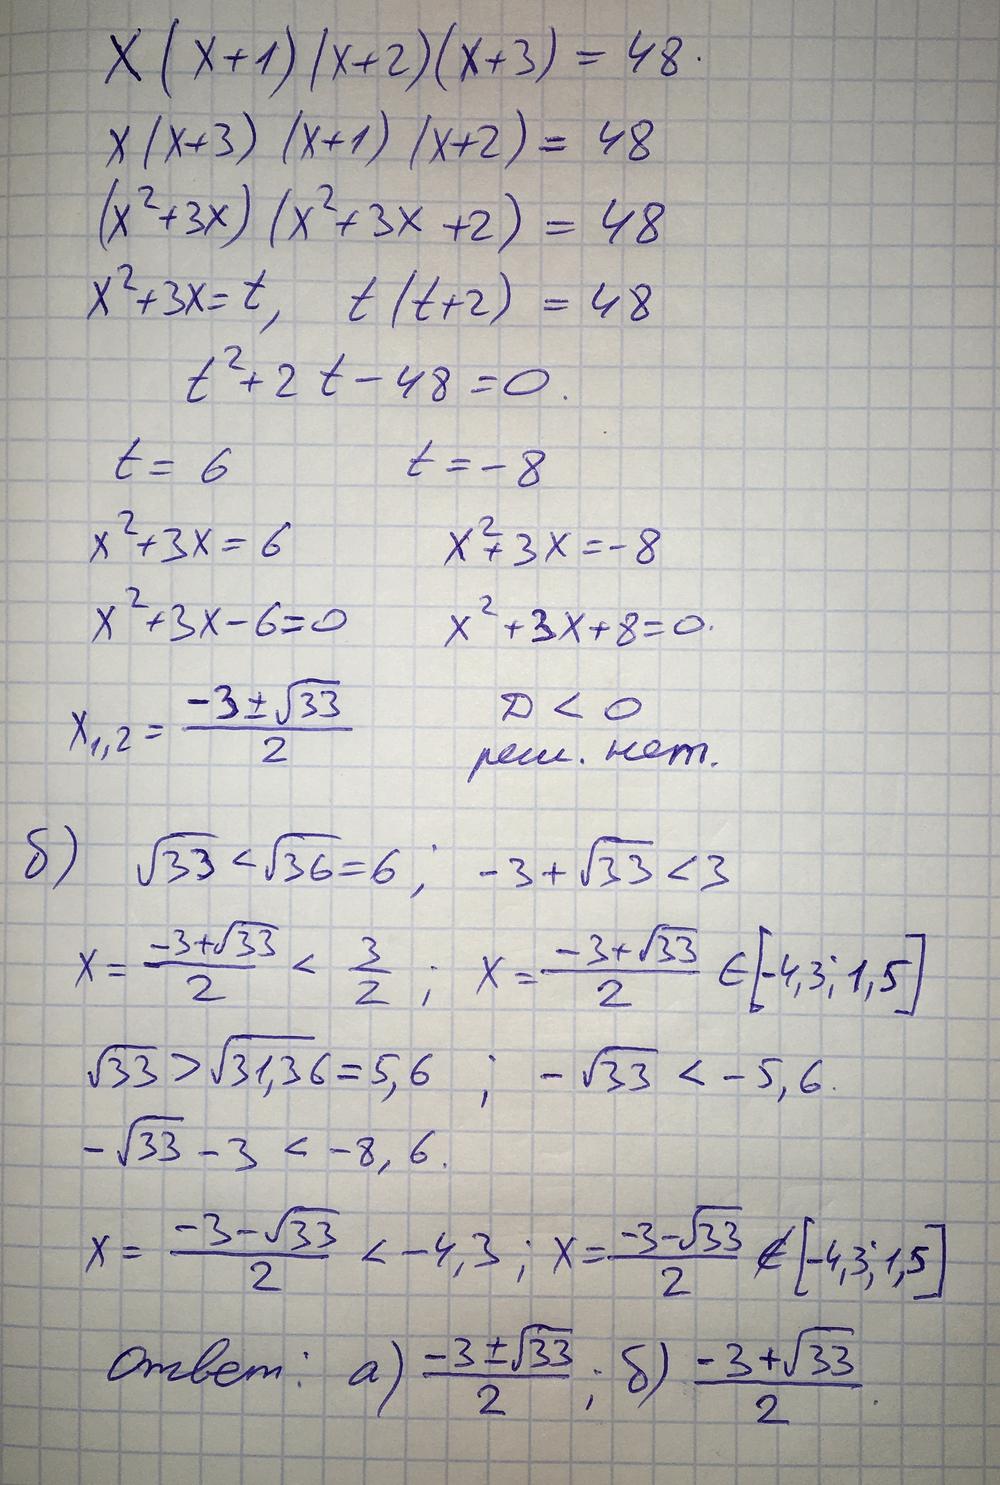 x(x+1)(x+2)(x+3) = 48.
x(x+3)(x+1)(x+2) = 48
(x²+3x)(x²+3x+2) = 48
x²+3x=t, t(t+2) = 48
t²+2t-48=0.
t = 6 t = -8
x²+3x = 6 x²+3x = -8
x²+3x-6=0 x²+3x+8=0.
x₁,₂ = (-3±√33)/2 D < 0
реш. нет.
б) √33 < √36 = 6; -3+√33 < 3
x = (-3+√33)/2 < 3/2; x = (-3+√33)/2 ∈ [-4,3; 1,5]
√33 > √31,36 = 5,6; -√33 < -5,6.
-√33 - 3 < -8,6.
x = (-3-√33)/2 < -4,3; x = (-3-√33)/2 ∉ [-4,3; 1,5]
Ответ: а) (-3±√33)/2; б) (-3+√33)/2.